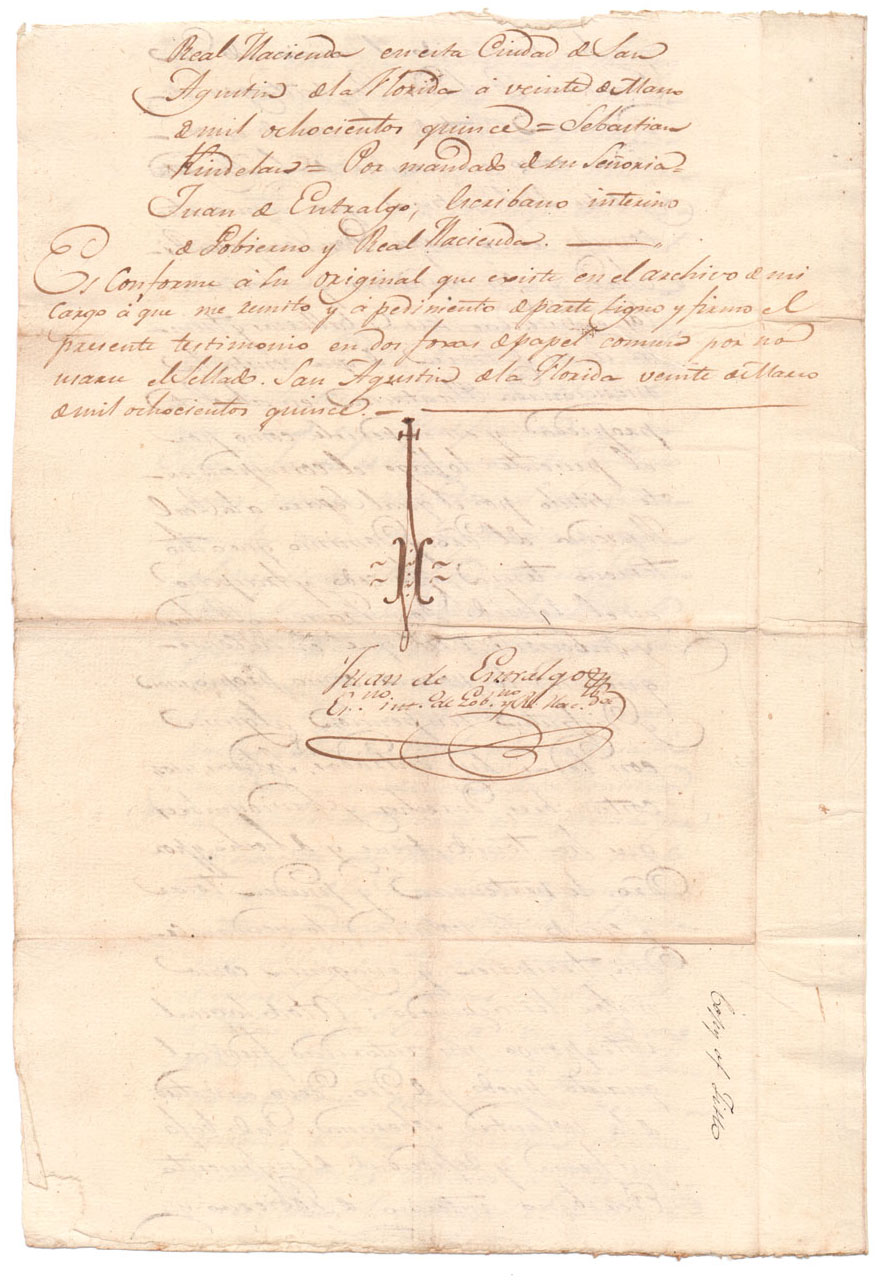 Real Hacienda en esta Ciudad de San
Agustin de la Florida á veinte de Marzo
de mil ochocientos quince = Sebastian
Kindelan = Por mandado de su Señoria =
Juan de Entralgo, Escribano interino
de Gobierno y Real Hacienda. —
Es conforme á su original que existe en el archivo de mi
cargo á que me remito y á pedimento de parte signo y firmo el
presente testimonio en dos foxas de papel comun por no
usarse el Sellado. San Agustin de la Florida veinte de Marzo
de mil ochocientos quince. —
Juan de Entralgo
Es.no int.o de Gob.no y Rl. Hac.da
Copy of Title